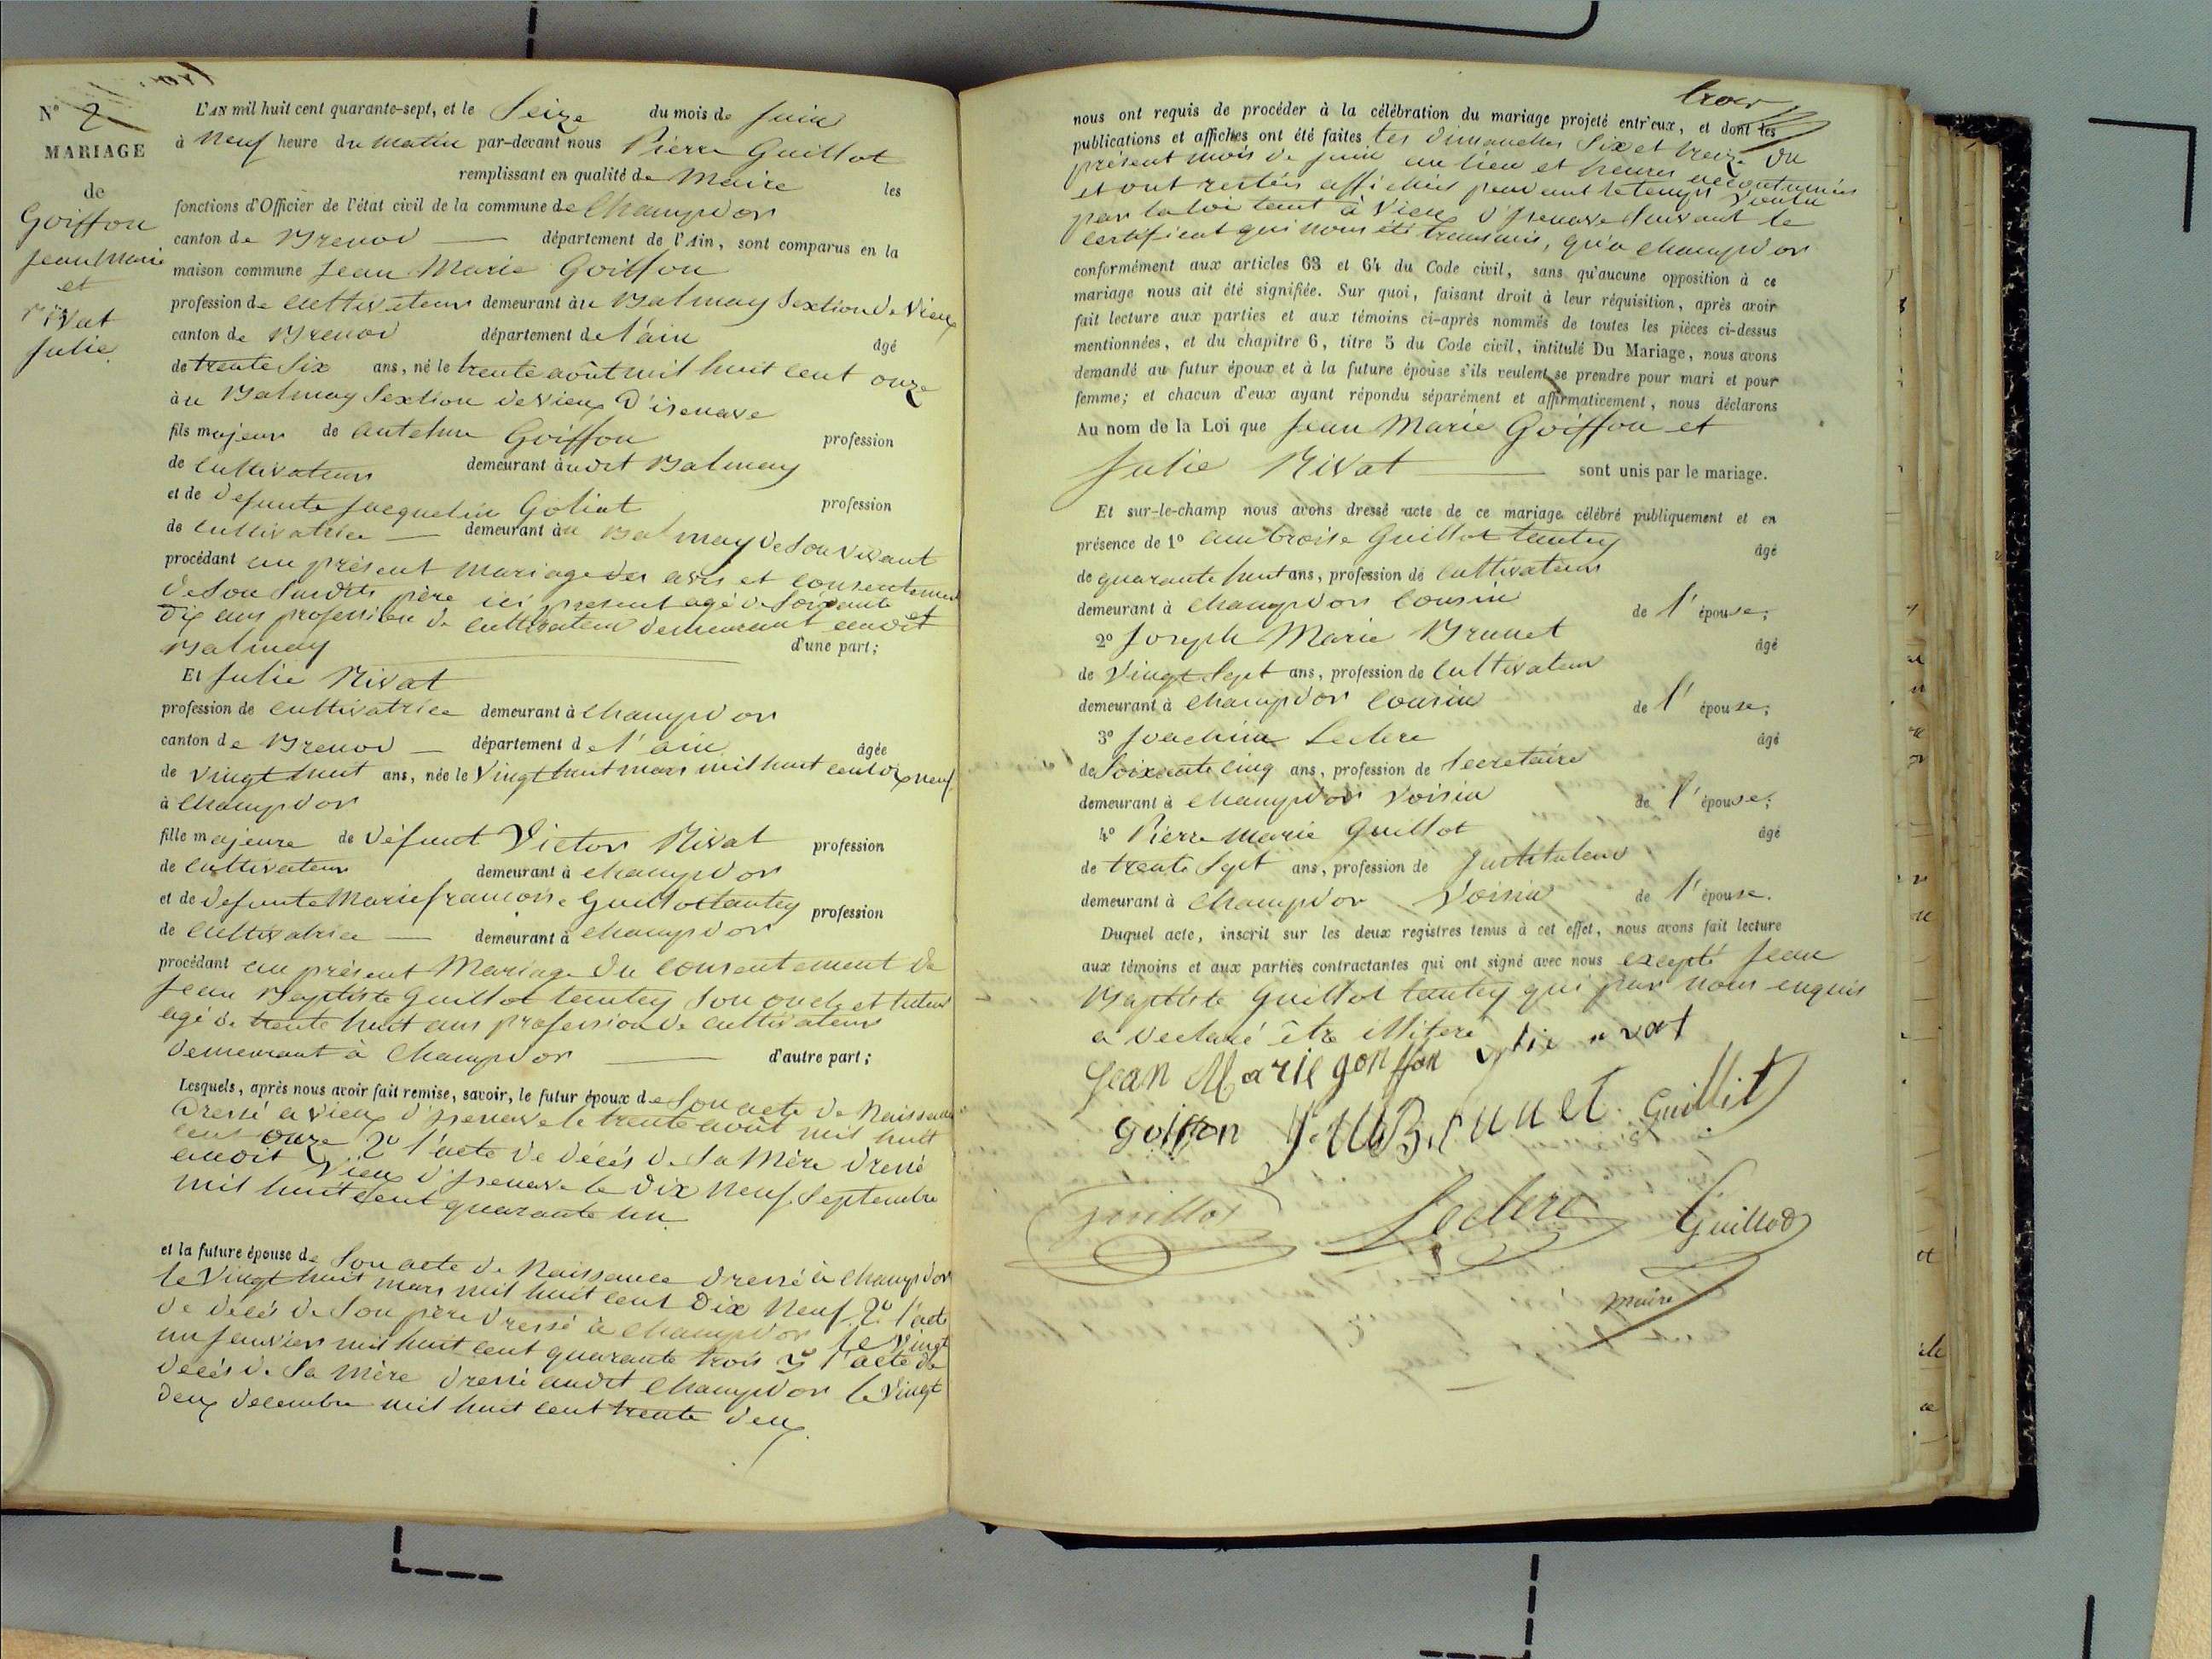 N° 2
MARIAGE
de
Goiffon
Jean Marie
et
Rivat
Julie
L'AN mil huit cent quarante-sept, et le Seize du mois de Juin
à neuf heure du matin par-devant nous Pierre Guillot
remplissant en qualité de Maire les
fonctions d'Officier de l'état civil de la commune de Champdor
canton de Brenod département de l'Ain, sont comparus en la
maison commune Jean Marie Goiffon
profession de cultivateur demeurant àu Balmay Sextion de Vieux
canton de Brenod département de l'ain âgé
de trente Six ans, né le trente août mil huit cent onze
àu Balmay Sextion de Vieux D'isenave
fils majeur de antelme Goiffon profession
de cultivateur demeurant àudit Balmay
et de defunte Jacqueline Goliat profession
de cultivatrice demeurant àu Balmay de Son vivant
procédant au présent mariage des avis et consentement
de Son Susdits père ici present agé de Soixante
Dix ans profession de cultivateur demeurant audit
Balmay d'une part;
Et Julie Rivat
profession de cultivatrice demeurant à Champdor
canton de Brenod département de l'ain âgée
de vingt huit ans, née le Vingt huit mars mil huit cent dix neuf
à Champdor
fille majeure de défunt Victor Rivat profession
de cultivateur demeurant à Champdor
et de defunte Marie francoise Guillot tantey profession
de cultivatrice demeurant à Champdor
procédant au présent Mariage du consentement de
Jean Baptiste Guillot tantey Son oncle et tuteur
agé de trente huit ans profession de cultivateur
demeurant à Champdor d'autre part;
Lesquels, après nous avoir fait remise, savoir, le futur époux de Son acte de Naissance
Dressé a vieux d'isenave le trente août mil huit
cent onze 2° l'acte de décès de Sa Mère dressé
audit Vieux d'isenave le dix Neuf Septembre
mil huit cent quarante un
et la future épouse de Son acte de Naissance dressé à Champdor
le Vingt huit mars mil huit cent Dix Neuf. 2° l'acte
de décès de Son père dressé à Champdor le Vingt
un Janvier mil huit cent quarante trois 3° l'acte de
décés de Sa Mère dressé audit Champdor le Vingt
deux decembre mil huit cent trente deux
trois
nous ont requis de procéder à la célébration du mariage projeté entr'eux, et dont les
publications et affiches ont été faites les dimanches Six et treize du
présent mois de Juin au lieu et heures accoutumées
et ont restées affichés pendant le temps voulu
par la loi tant à Vieux d'isenave Suivant le
certificat qui nous été transmis, qu'à Champdor
conformément aux articles 63 et 64 du Code civil, sans qu'aucune opposition à ce
mariage nous ait été signifiée. Sur quoi, faisant droit à leur réquisition, après avoir
fait lecture aux parties et aux témoins ci-après nommés de toutes les pièces ci-dessus
mentionnées, et du chapitre 6, titre 5 du Code civil, intitulé Du Mariage, nous avons
demandé au futur époux et à la future épouse s'ils veulent se prendre pour mari et pour
femme; et chacun d'eux ayant répondu séparément et affirmativement, nous déclarons
Au nom de la Loi que Jean Marie Goiffon et
Julie Rivat sont unis par le mariage.
Et sur-le-champ nous avons dressé acte de ce mariage célébré publiquement et en
présence de 1° ambroise Guillot tantey âgé
de quarante huit ans, profession de cultivateur
demeurant à Champdor cousin de l'épouse;
2° Joseph Marie Brunet âgé
de Vingt Sept ans, profession de cultivateur
demeurant à Champdor cousin de l'épouse;
3° Joachim Leclerc âgé
de Soixante cinq ans, profession de Secretaire
demeurant à Champdor voisin de l'épouse;
4° Pierre Marie Guillot âgé
de trente Sept ans, profession de Instituteur
demeurant à Champdor Voisin de l'épouse.
Duquel acte, inscrit sur les deux registres tenus à cet effet, nous avons fait lecture
aux témoins et aux parties contractantes qui ont signé avec nous excepté Jean
Baptiste Guillot tantey qui par nous enquis
a declaré être illiteré
Jean Marie goiffon Julie rivat
goiffon J. M Brunet Guillot
Guillot Leclerc Guillot
maire